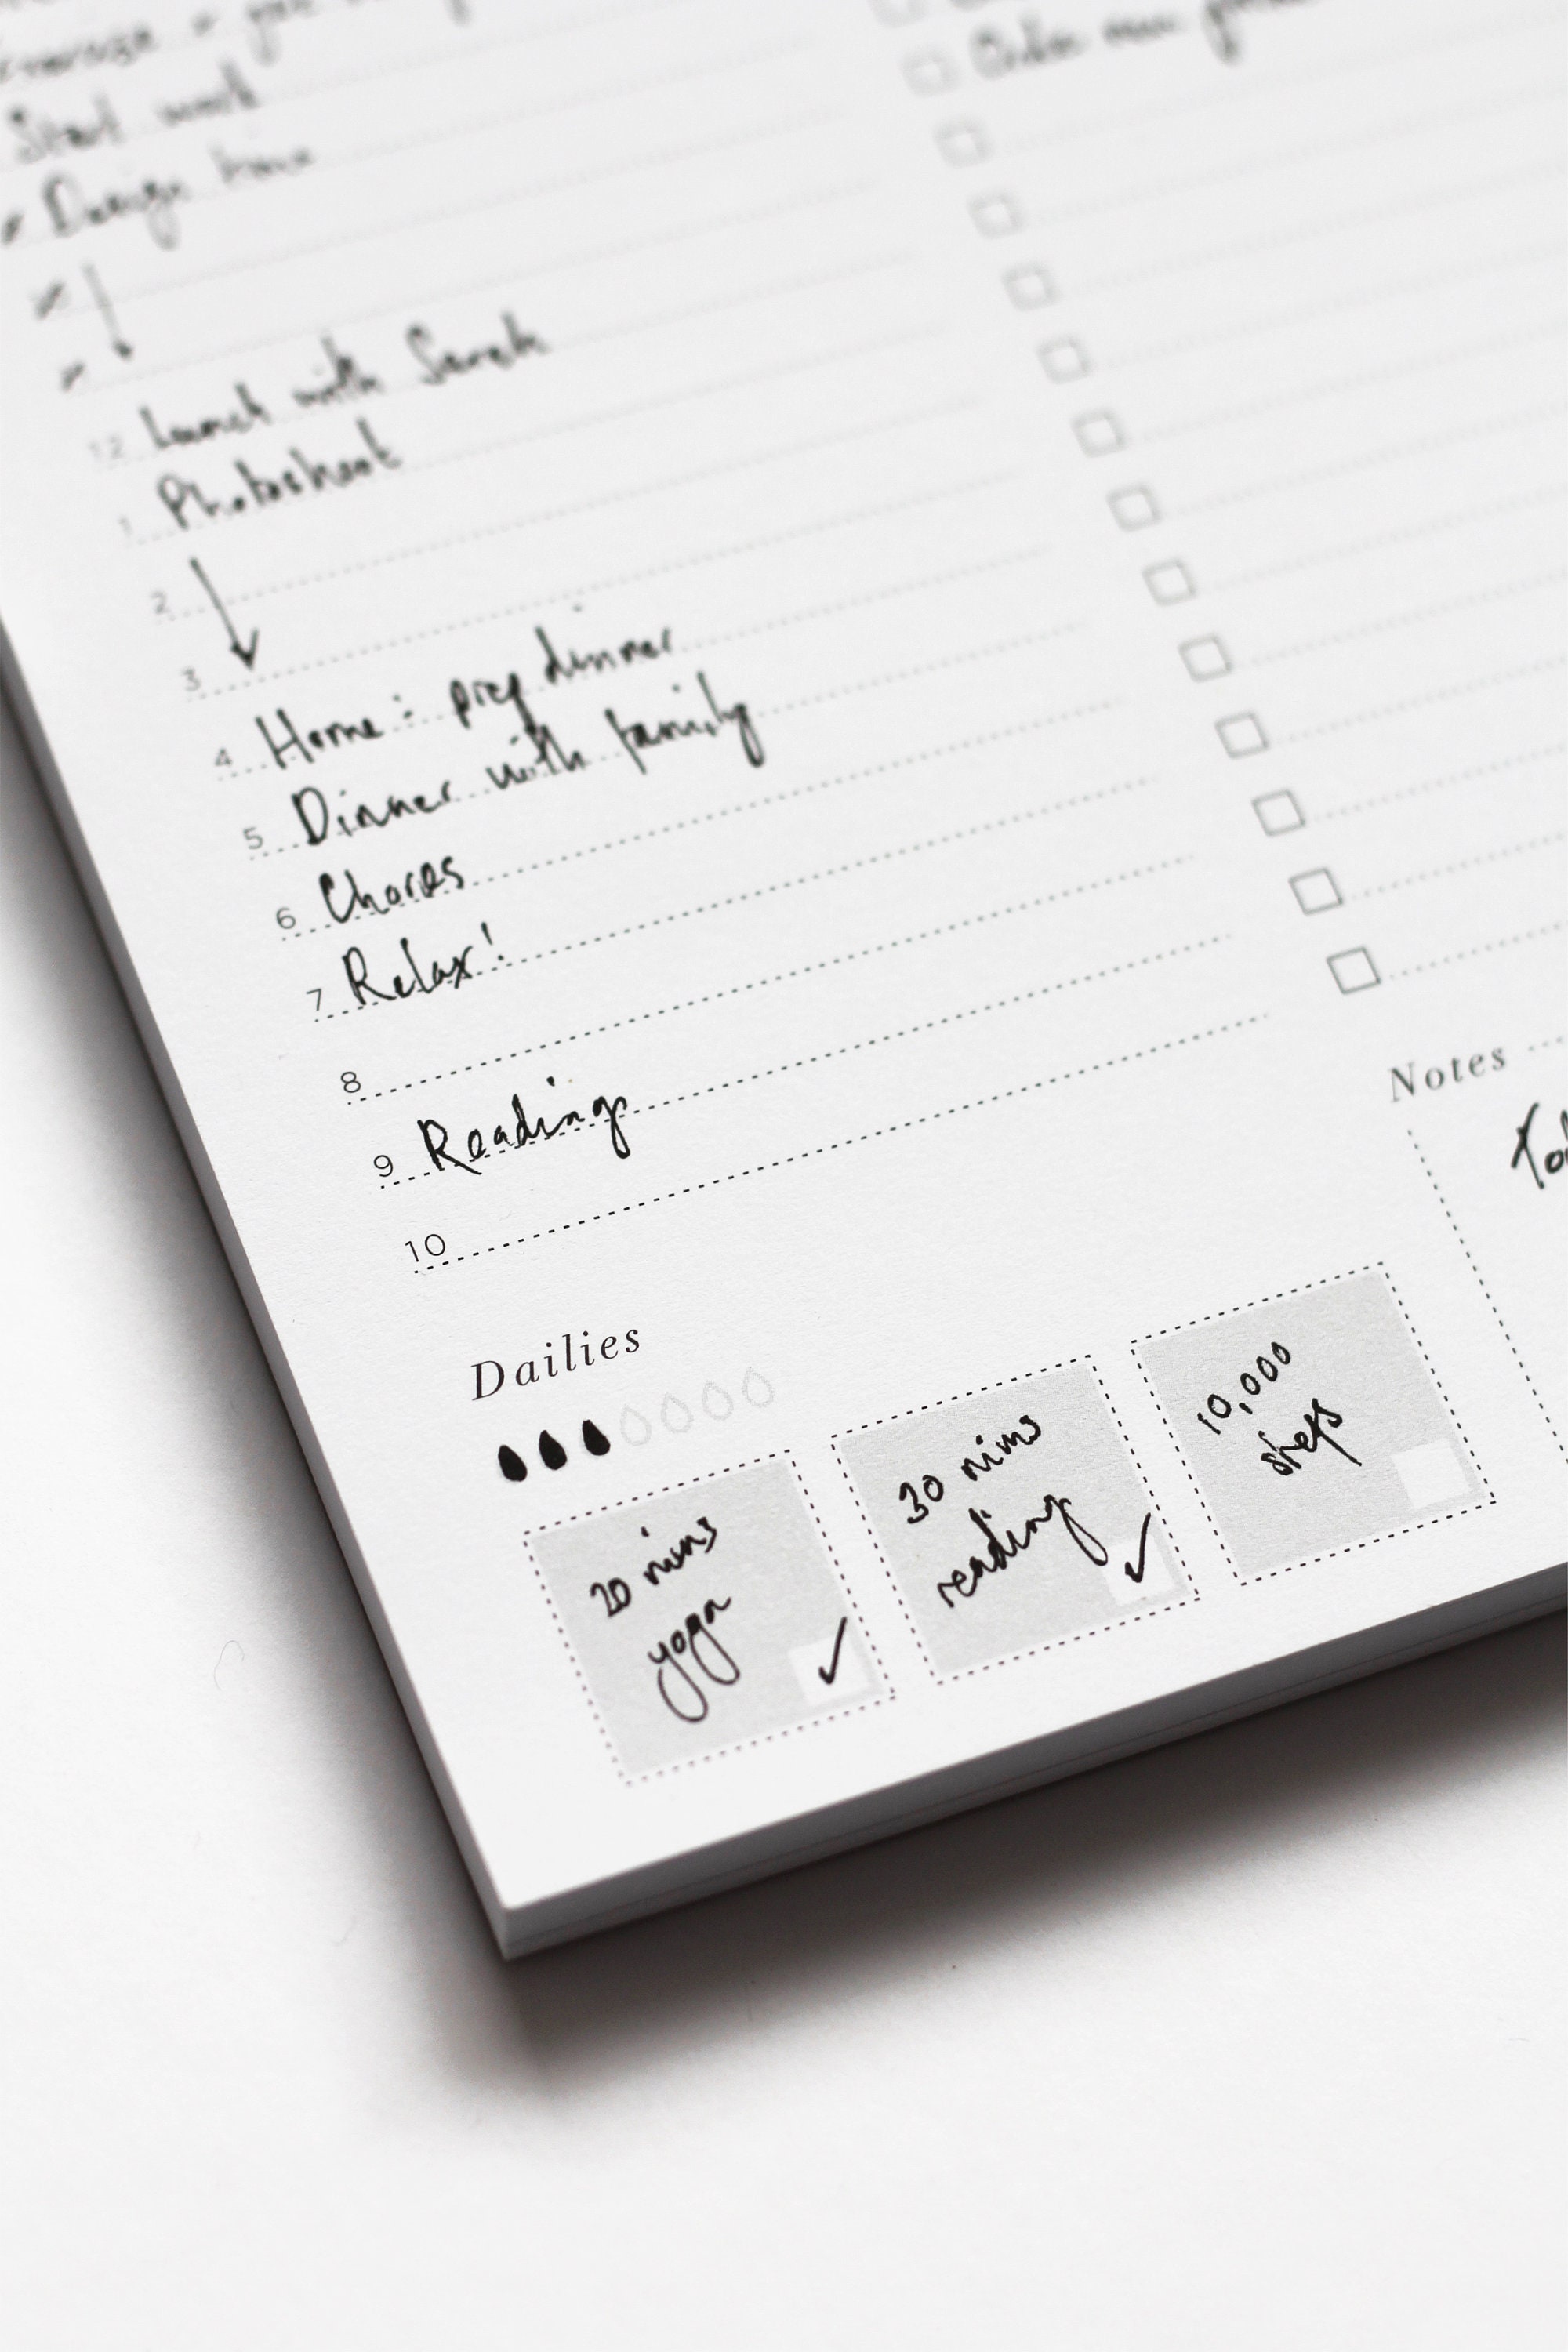 Start work
Design time
12 Lunch with Sarah
1 Photoshoot
2
3
4 Home: prep dinner
5 Dinner with family
6 Chores
7 Relax!
8
9 Reading
10
Order new
Notes
Dailies
20 mins
yoga
✓
30 mins
reading
✓
10,000
steps